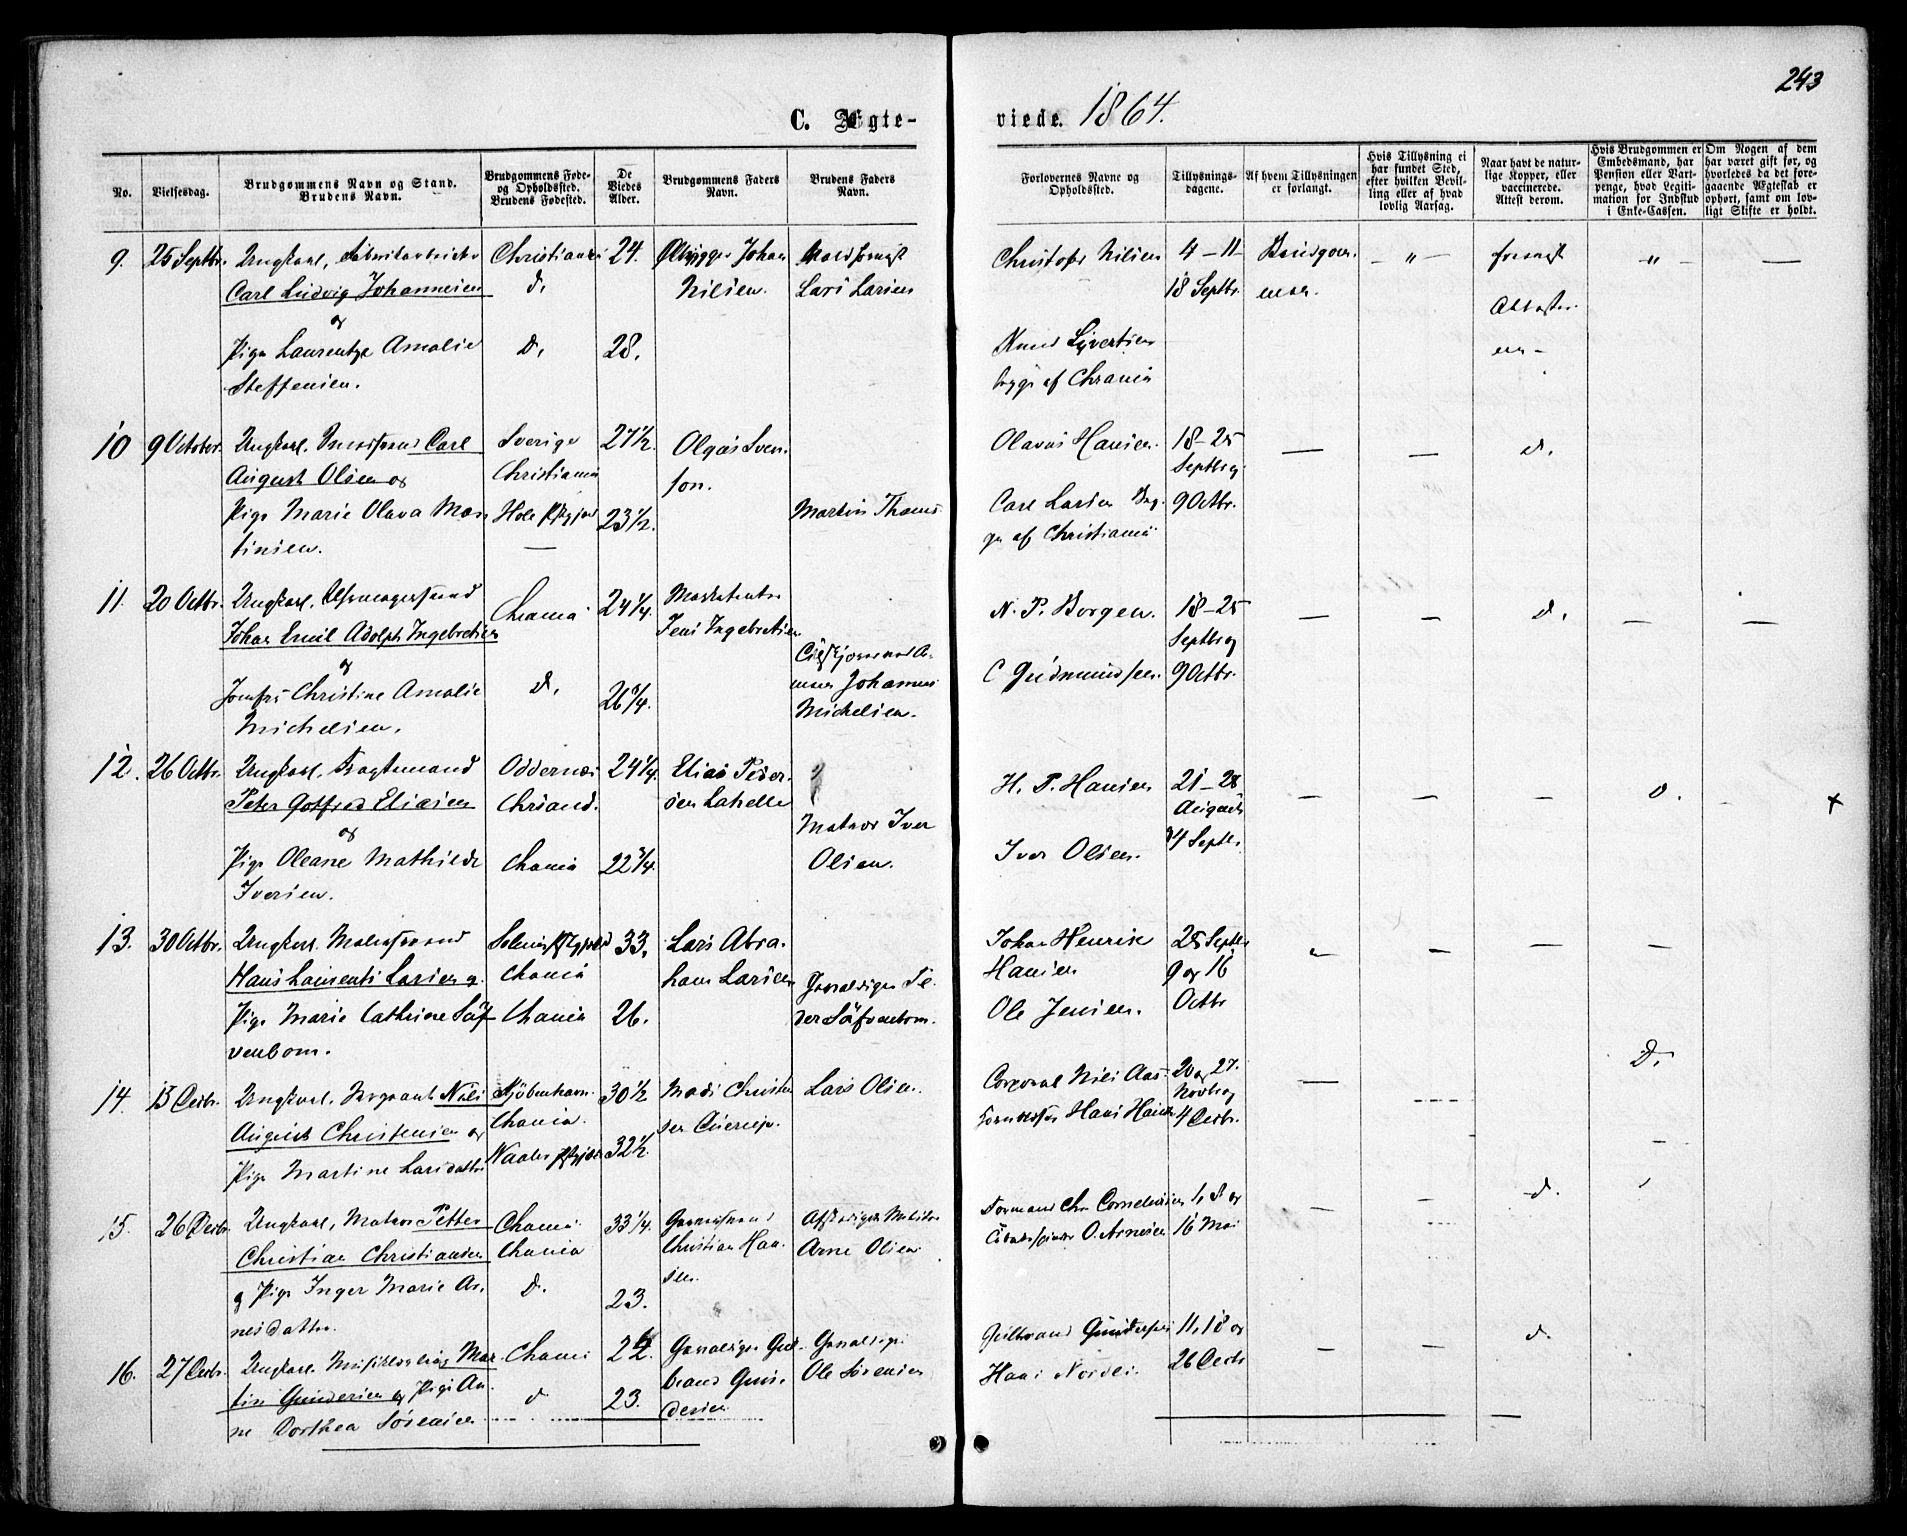 243
C. Ægte-
viede. 1864.
No.
Vielsesdag.
Brudgommens Navn og Stand.
Brudens Navn.
Brudgommens Føde-
og Opholdssted.
Brudens Fødested.
De
Viedes
Alder.
Brudgommens Faders
Navn.
Brudens Faders
Navn.
Forlovernes Navne og
Opholdssted.
Tillysnings-
dagene.
Af hvem Tillysningen
er forlangt.
Hvis Tillysning ei
har fundet Sted,
efter hvilken Bevil-
ling eller af hvad
lovlig Aarsag.
Naar havt de natur-
lige Kopper, eller
vaccinerede.
Attest derom.
Hvis Brudgommen er
Embedsmand, har
Pension eller Vart-
penge, hvad Legiti-
mation for Indskud
i Enke-Cassen.
Om Nogen af dem
har været gift før, og
hvorledes da det fore-
gaaende Ægteskab er
ophørt, samt om lov-
ligt Skifte er holdt.
9. 25 Septbr. Ungkarl, Fabrikarbeider Christiania 24. Johan
Carl Ludvig Johannesen d. Nilsen. Lars Larsen
og
Pige Laurentze Amalie D. 28.
Steffensen.
Christofer Nilsen 4 - 11 - Brudgom-
18 Septbr. men.
Knud Syvertsen
begge af Chrania
10 9 October. Ungkarl. Carl Sverige 27½. Olaus Sven-
August Olsen og Christiania son.
Pige Marie Olava Mar- Hole Prstgjeld 23½. Martin Thoms.
tinsen.
Olavus Hansen. 18 - 25 d.
Septbr og
Carl Larsen Beg- 9 Octbr.
ge af Christiania
11. 20 Octbr. Ungkarl. Johan Emil Adolph Ingebretsen Chania 24¼
Jens Ingebretsen
og
Jomfru Christine Amalie d. 26¾. Johannes
Michelsen. Michelsen.
N. P. Borgen. 18 - 25 d.
Septbr og
C Gudmundsen. 9 Octbr.
12. 26 Octbr. Ungkarl, Fragtemand Oddernæs 24¼. Elias Peder-
Peter Gotfred Eliasen Chrsand. sen
og Matros Iver
Pige Oleane Mathilde Chania 22¾. Olsen.
Iversen.
H. P. Hansen 21 - 28 d.
August
Iver Olsen. 4 Septbr. +
13. 30 Octbr. Ungkarl. Malersvend 33. Lars Abra-
Hans Laurents Larsen og Chania ham Larsen
Pige Marie Cathrine Säf- Chania 26. der Säfvenbom.
venbom.
Johan Henrik 25 Septbr
Hansen 9 og 16
Ole Jensen. Octbr
14. 13 Decbr. Ungkarl, Sergeant Nils Kjøbenhavn. 30½ Mads Christen- Lars Olsen.
August Christensen og Chania.
Pige Martine Larsdatter 32½.
Corporal Nils Aas. 20 og 27. D.
Novbr og
Hans Hansen 4 Decbr.
15. 26 Decbr. Ungkarl, Matros Petter Chania 33¼.
Christian Christiansen Chania Christian Han- Arne Olsen.
og Pige Inger Marie Ar- d. 23. sen.
nesdatter.
Formand Chr. Cornelius 1, 8 og d.
O. Arnesen 16 Mai
16. 27 Decbr. Ungkarl. Mar- Chania 24. Gul- Ole Sørensen
tin Gundersen og Pige An- d 23. brand Gun-
ne Dorthea Sørensen dersen
Gulbrand Gundersen 11, 18 og d.
Hans 26 Decbr